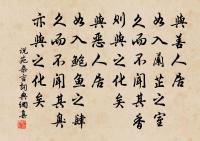 與善人居
如入蘭芷之室
久而不聞其香
則與之化矣
與惡人居
如入鮑魚之肆
久而不聞其臭
亦與之化矣
說苑雜言